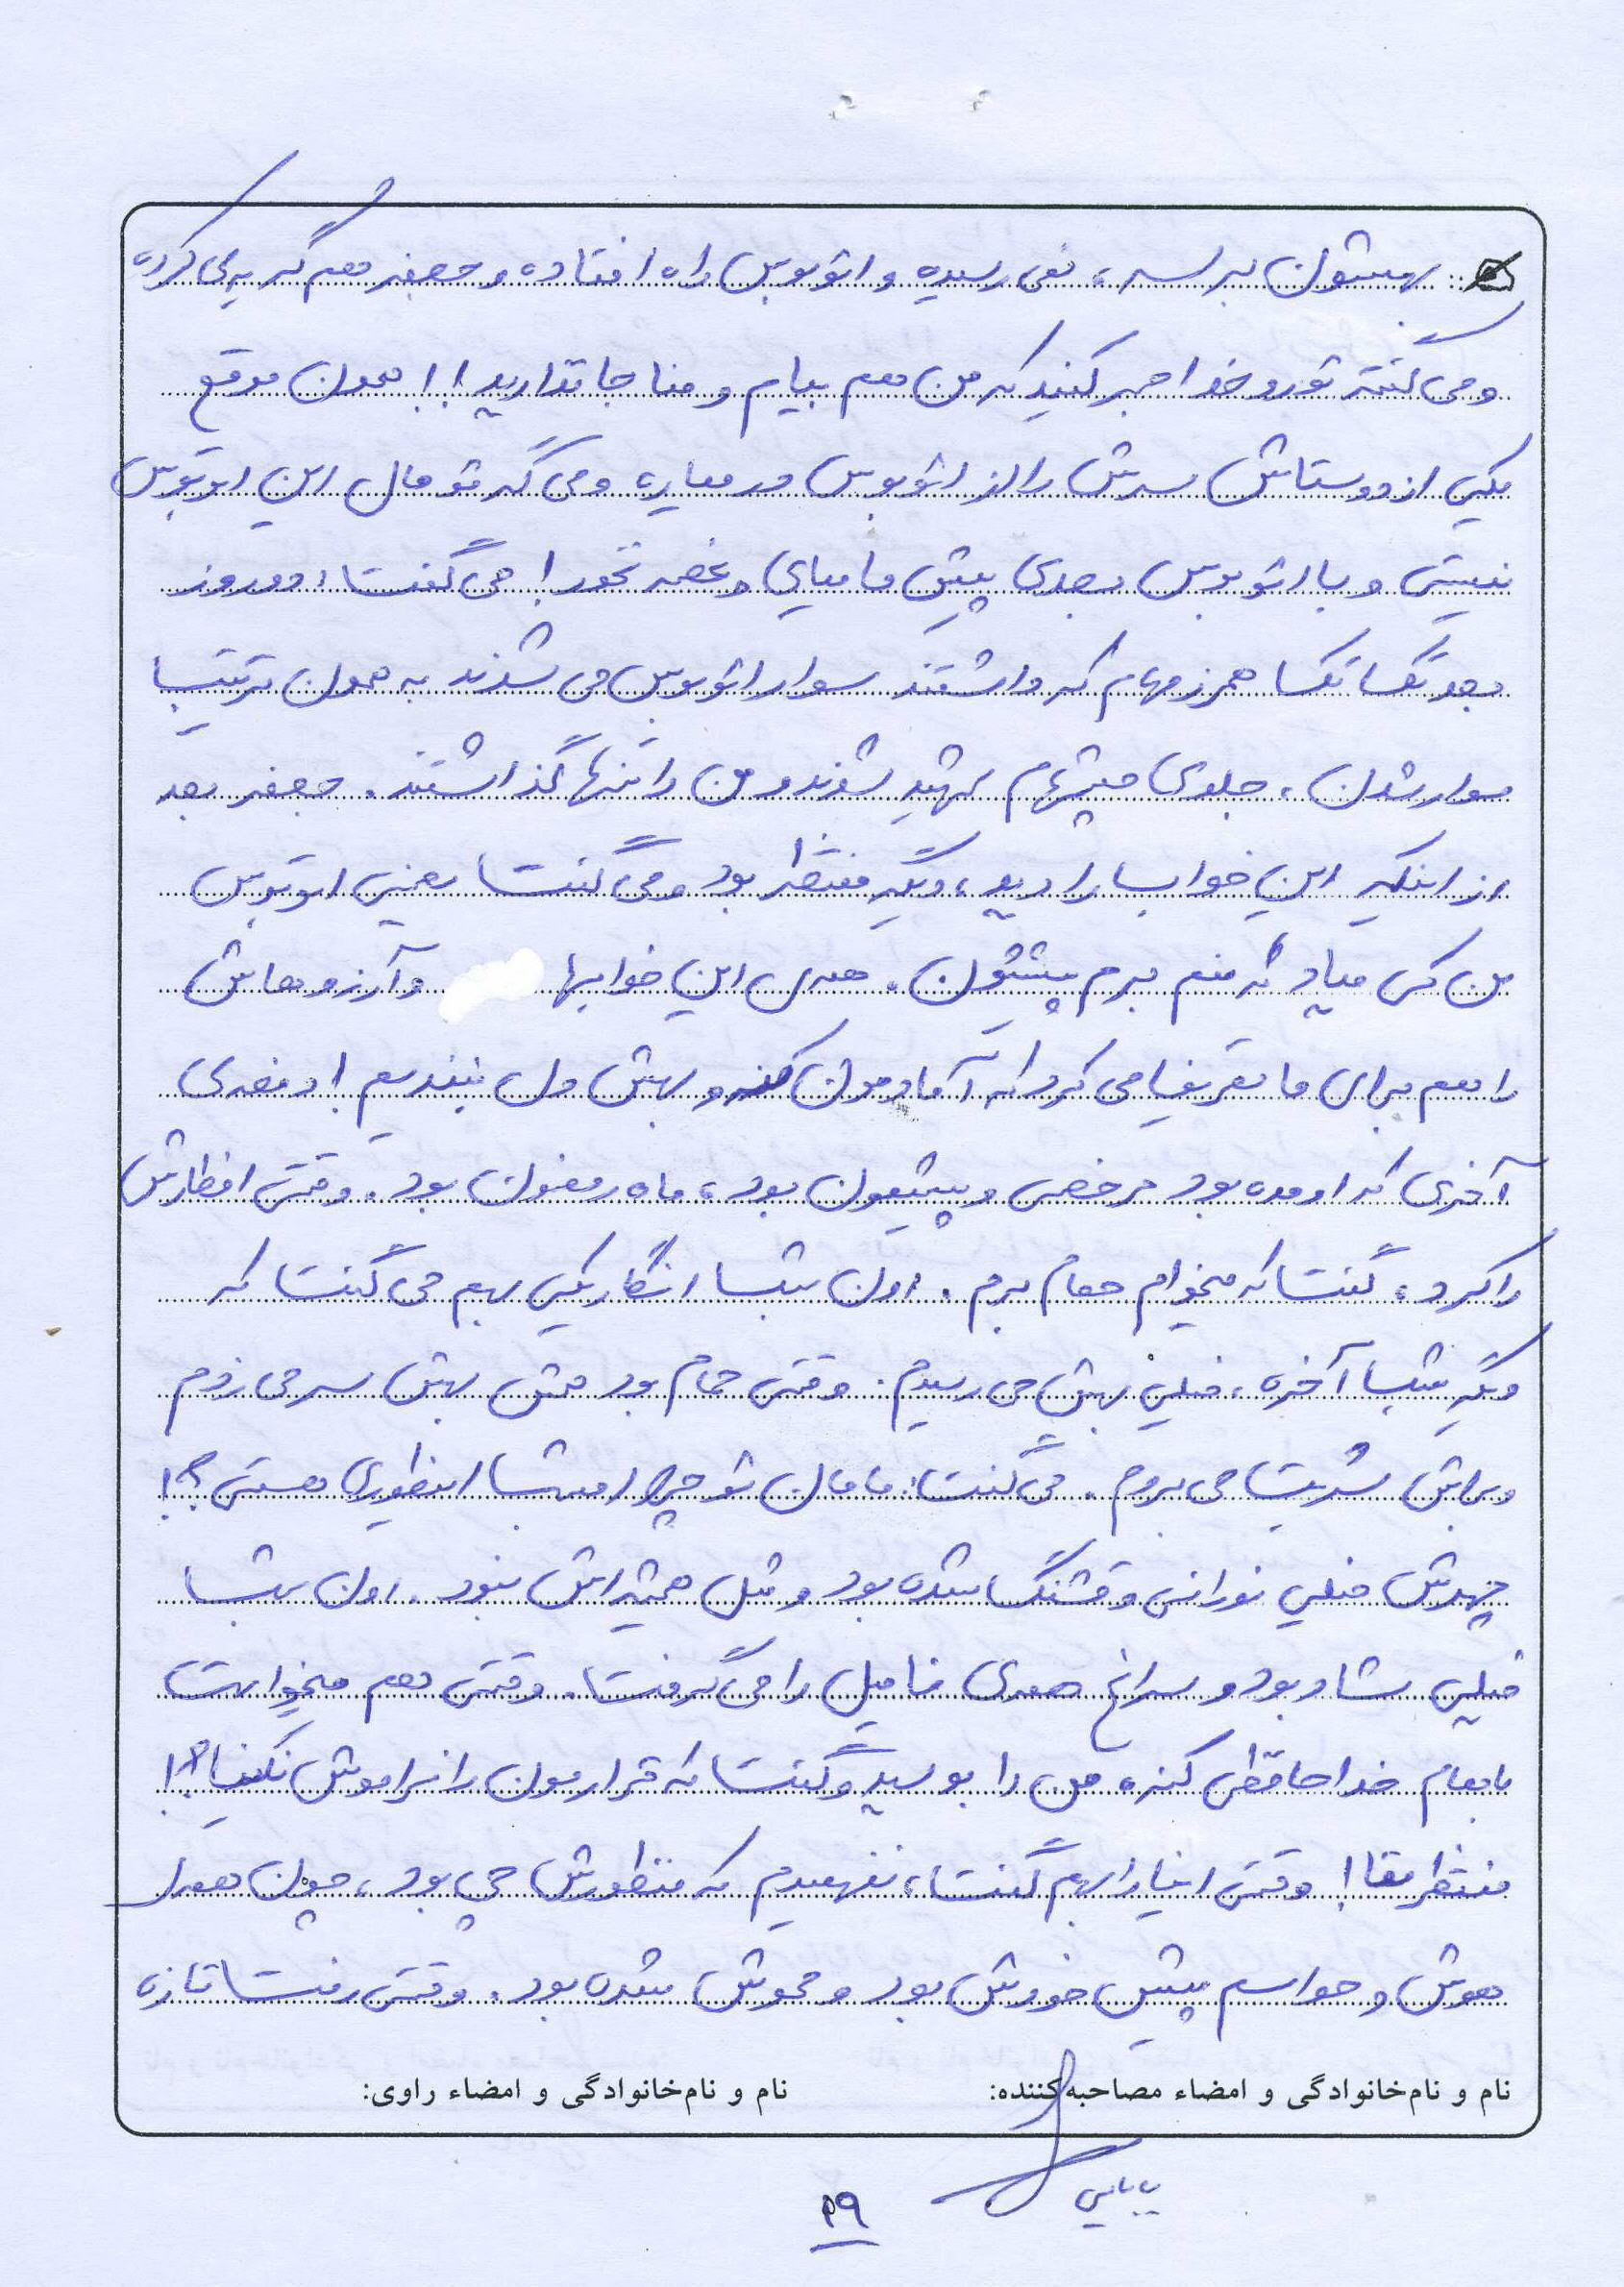 بهشون برسه، نمی رسیده و اتوبوس راه افتاده و جعفر هم گریه می کرده
و می گفته تو رو خدا صبر کنید که من هم بیام و منا جا نذارید!! همون موقع
یکی از دوستاش سرش را از اتوبوس در میاره و می گه تو مال این اتوبوس
نیستی و با اتوبوس بعدی پیش ما میای و غصه نخور! می گفت: دو روز
بعد تک تک همرزمهام که داشتند سوار اتوبوس می شدند به همون ترتیب
سوار شدن، جلوی چشمهام شهید شدند و من را تنها گذاشتند. جعفر بعد
از اینکه این خواب را دید، دیگه منتظر بود و می گفت یعنی اتوبوس
من کی میاد که منم برم پیششون. همه ی این خوابها و آرزوهاش
را هم برای ما تعریف می کرد که آمادمون کنه و بهش دل نبندیم! دفعه ی
آخری که اومده بود مرخصی و پیشمون بود، ماه رمضون بود. وقتی افطارش
را کرد، گفت که میخوام حمام برم. اون شب انگار یکی بهم می گفت که
دیگه شب آخره، خیلی بهش می رسیدم. وقتی حمام بود همش بهش سر می زدم
و براش شربت می بردم. می گفت: مامان تو چرا امشب اینطوری هستی؟!
چهرش خیلی نورانی و قشنگ شده بود و مثل همیشه اش نبود. اون شب
خیلی شاد بود و سراغ همه ی فامیل را می گرفت. وقتی هم میخواست
باهام خداحافظی کنه، من را بوسید و گفت که قرارمون را فراموش نکنیا!
منتظریما! وقتی اینا را بهم گفت، نفهمیدم که منظورش چی بود، چون همه ی
هوش و حواسم پیش خودش بود و محوش شده بود. وقتی رفت تازه
نام و نام‌خانوادگی و امضاء مصاحبه‌کننده: نام و نام‌خانوادگی و امضاء راوی:
بابایی
۱۹